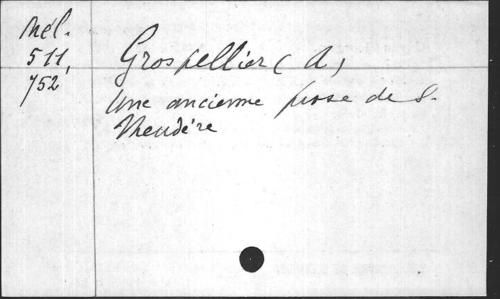 Mél.
511,
752
Grospellier (A)
Une ancienne prose de S.
Theudère